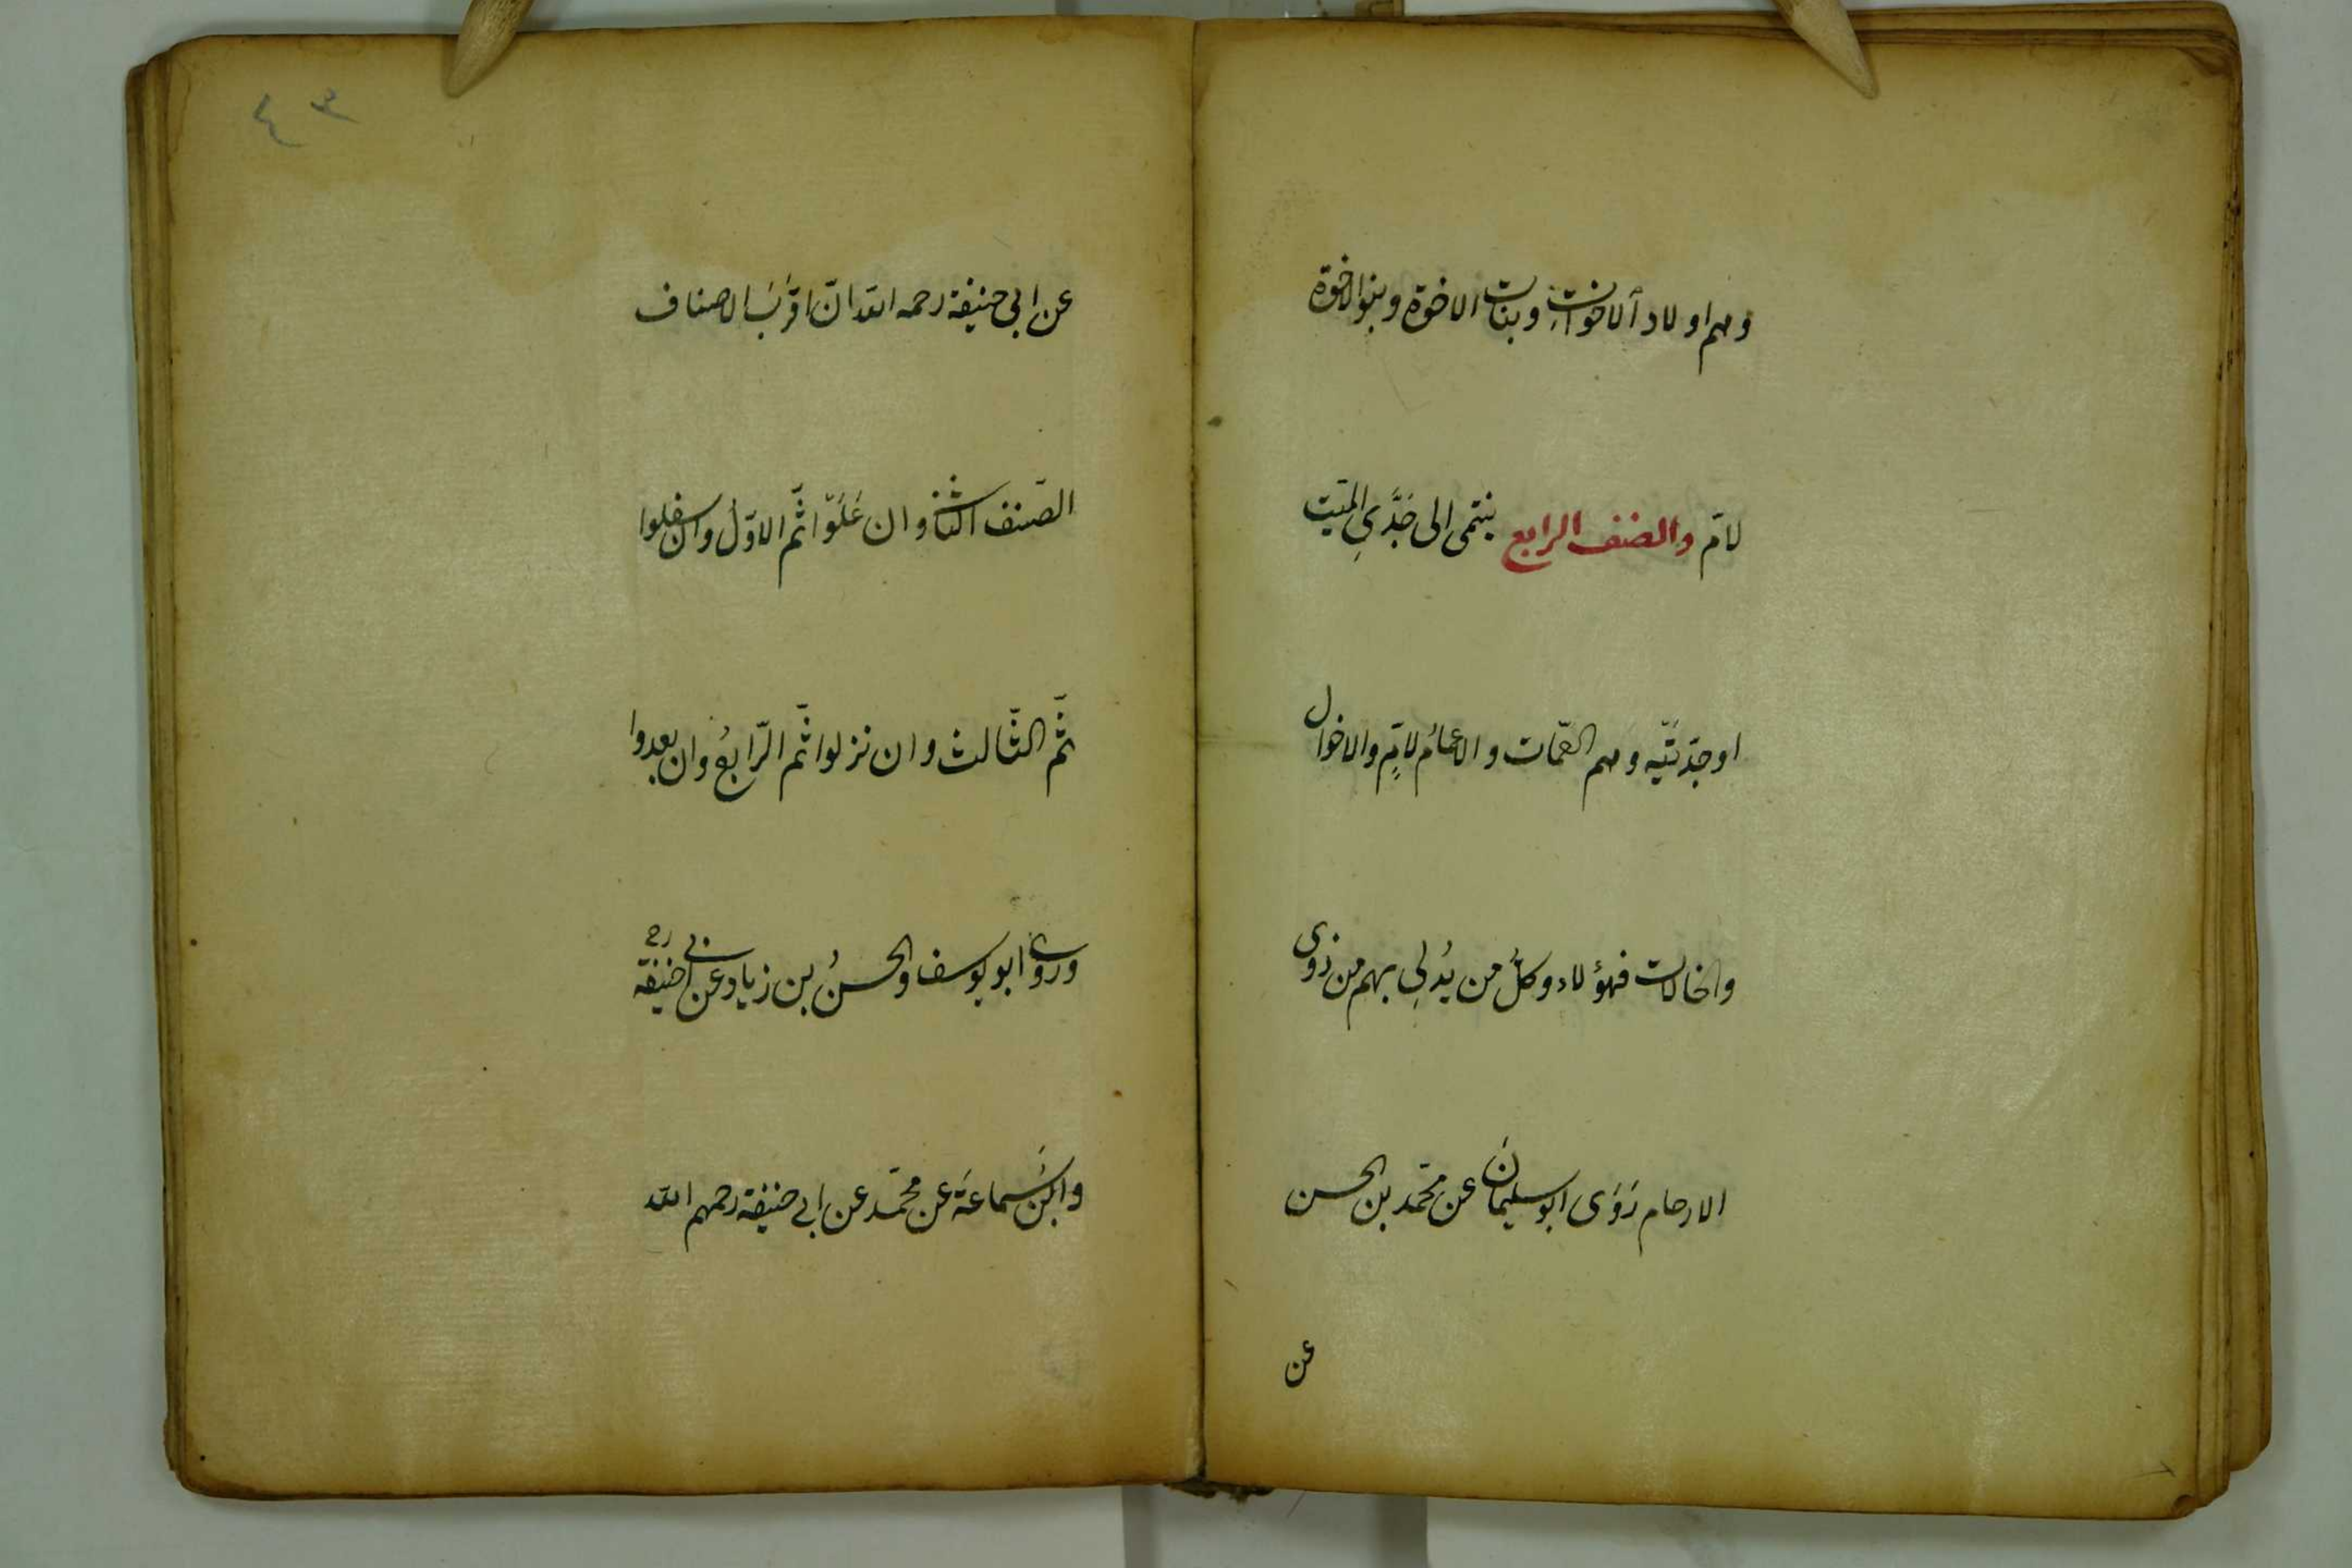 وهم اولاد الاخوات وبنات الاخوة وبنوا الاخوة
لامّ والصنف الرابع ينتمى الى جَدَّيِ الميّت
او جدّتَيْه وهم العمّات والاعمامُ لامٍّ والاخوال
والخالات فهؤلاء وكلُّ من يُدلِى بهم من ذوى
الارحام رَوَى ابو سليمانَ عن محمّد بن الحسن
عن
٤٣
عن ابى حنيفة رحمه الله انّ اقرَبَ الاصناف
الصّنف الثانى وان عَلَوْا ثُمّ الاوّل وان سفلوا
ثمّ الثّالث وان نزلوا ثمّ الرّابعُ وان بعدوا
وروى ابو يوسف والحسنُ بن زياد عن ابى حنيفة رح
وابنُ سَماعَة عن محمّد عن ابى حنيفة رحمهم الله